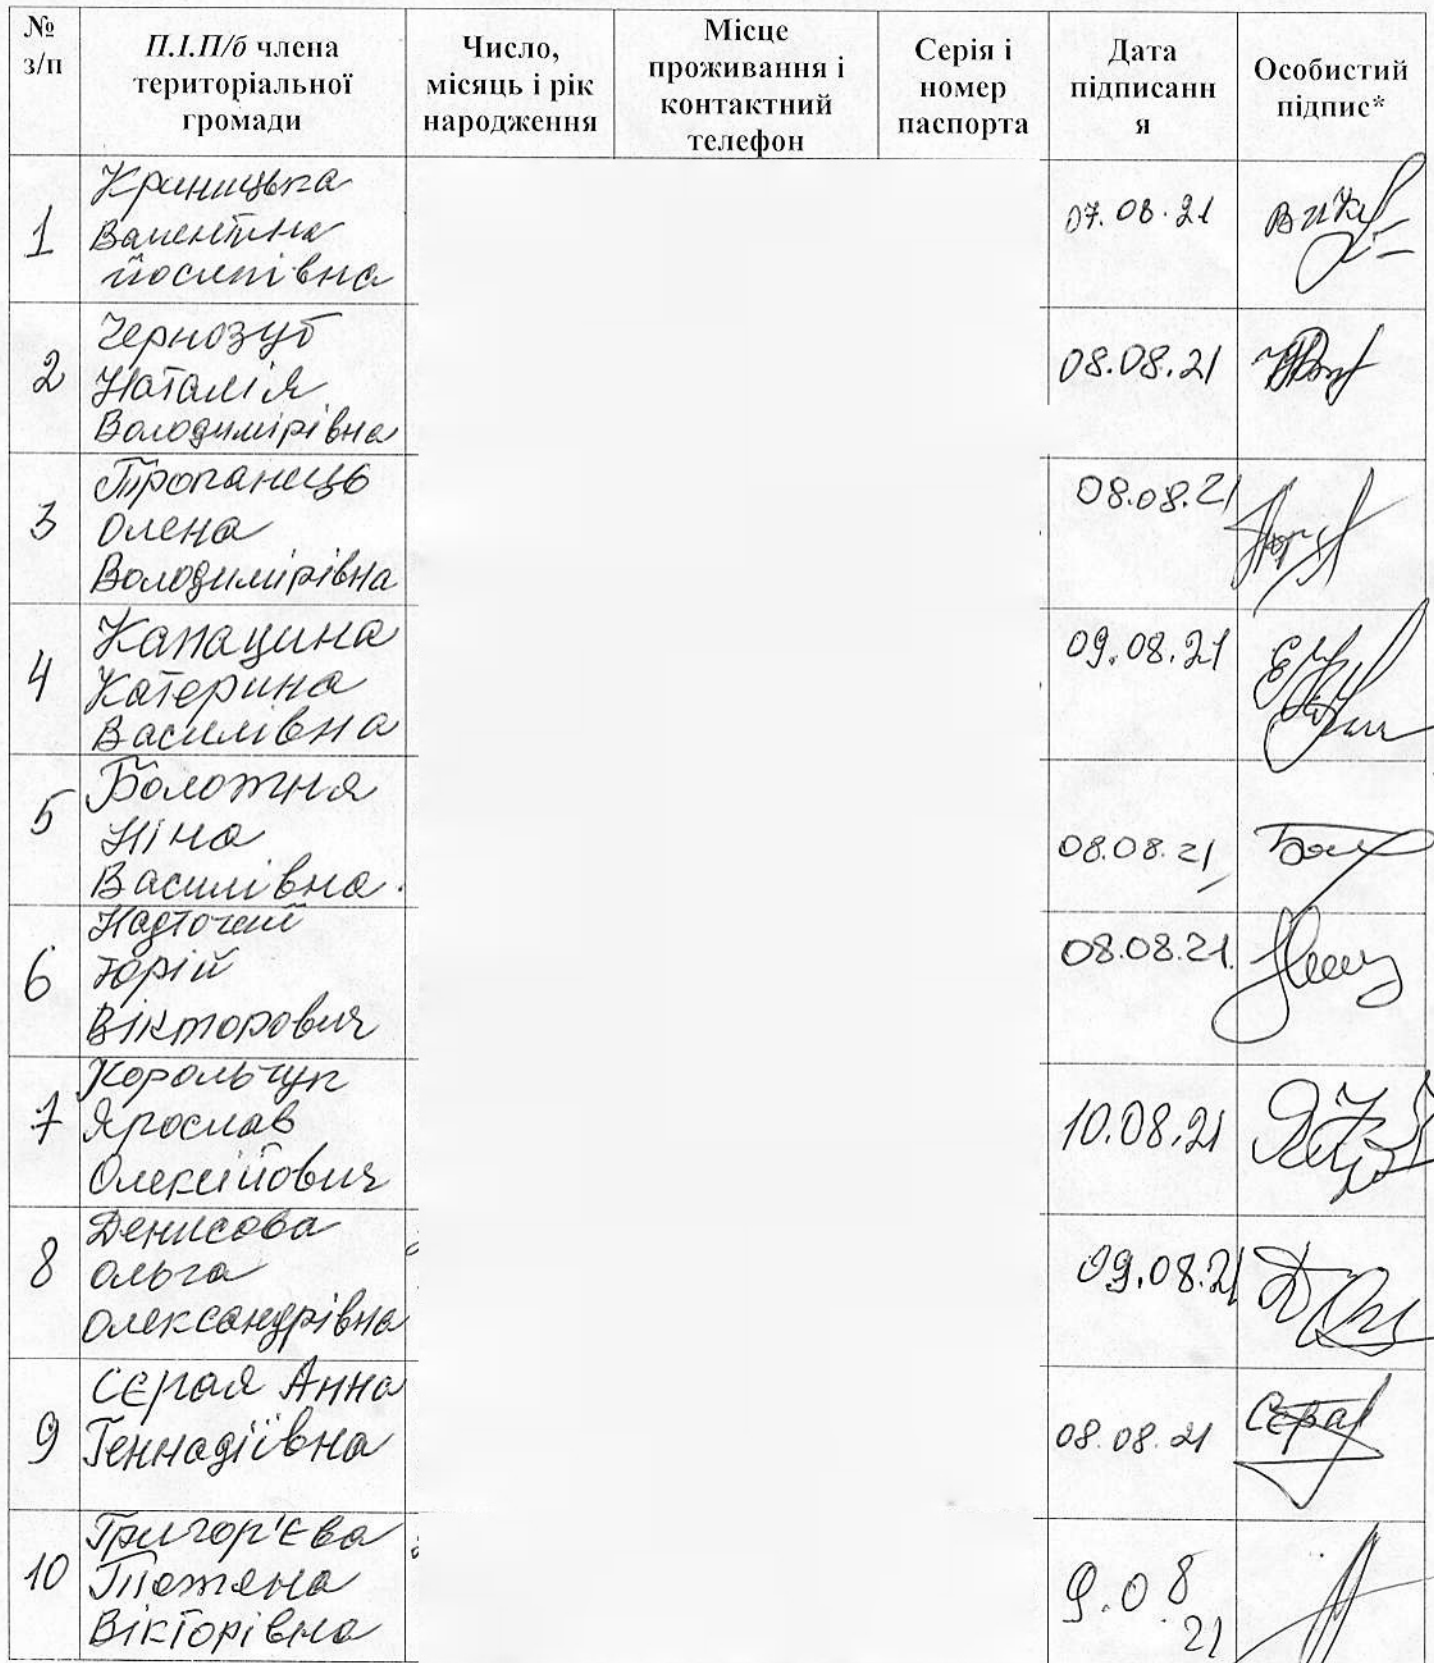 № з/п
П.І.П/б члена територіальної громади
Число, місяць і рік народження
Місце проживання і контактний телефон
Серія і номер паспорта
Дата підписанн я
Особистий підпис*
1
Криницька
Валентина
Йосипівна
07.08.21
2
Чернозуб
Наталія
Володимирівна
08.08.21
3
Тропанець
Олена
Володимирівна
08.08.21
4
Капацина
Катерина
Василівна
09.08.21
5
Болотня
Ніна
Василівна.
08.08.21
6
Надточий
Юрій
Вікторович
08.08.21.
7
Корольчук
Ярослав
Олексійович
10.08.21
8
Денисова
Ольга
Олександрівна
09.08.21
9
Сєрая Анна
Геннадіївна
08.08.21
Сєрая
10
Григор'єва
Тетяна
Вікторівна
9.08
.21